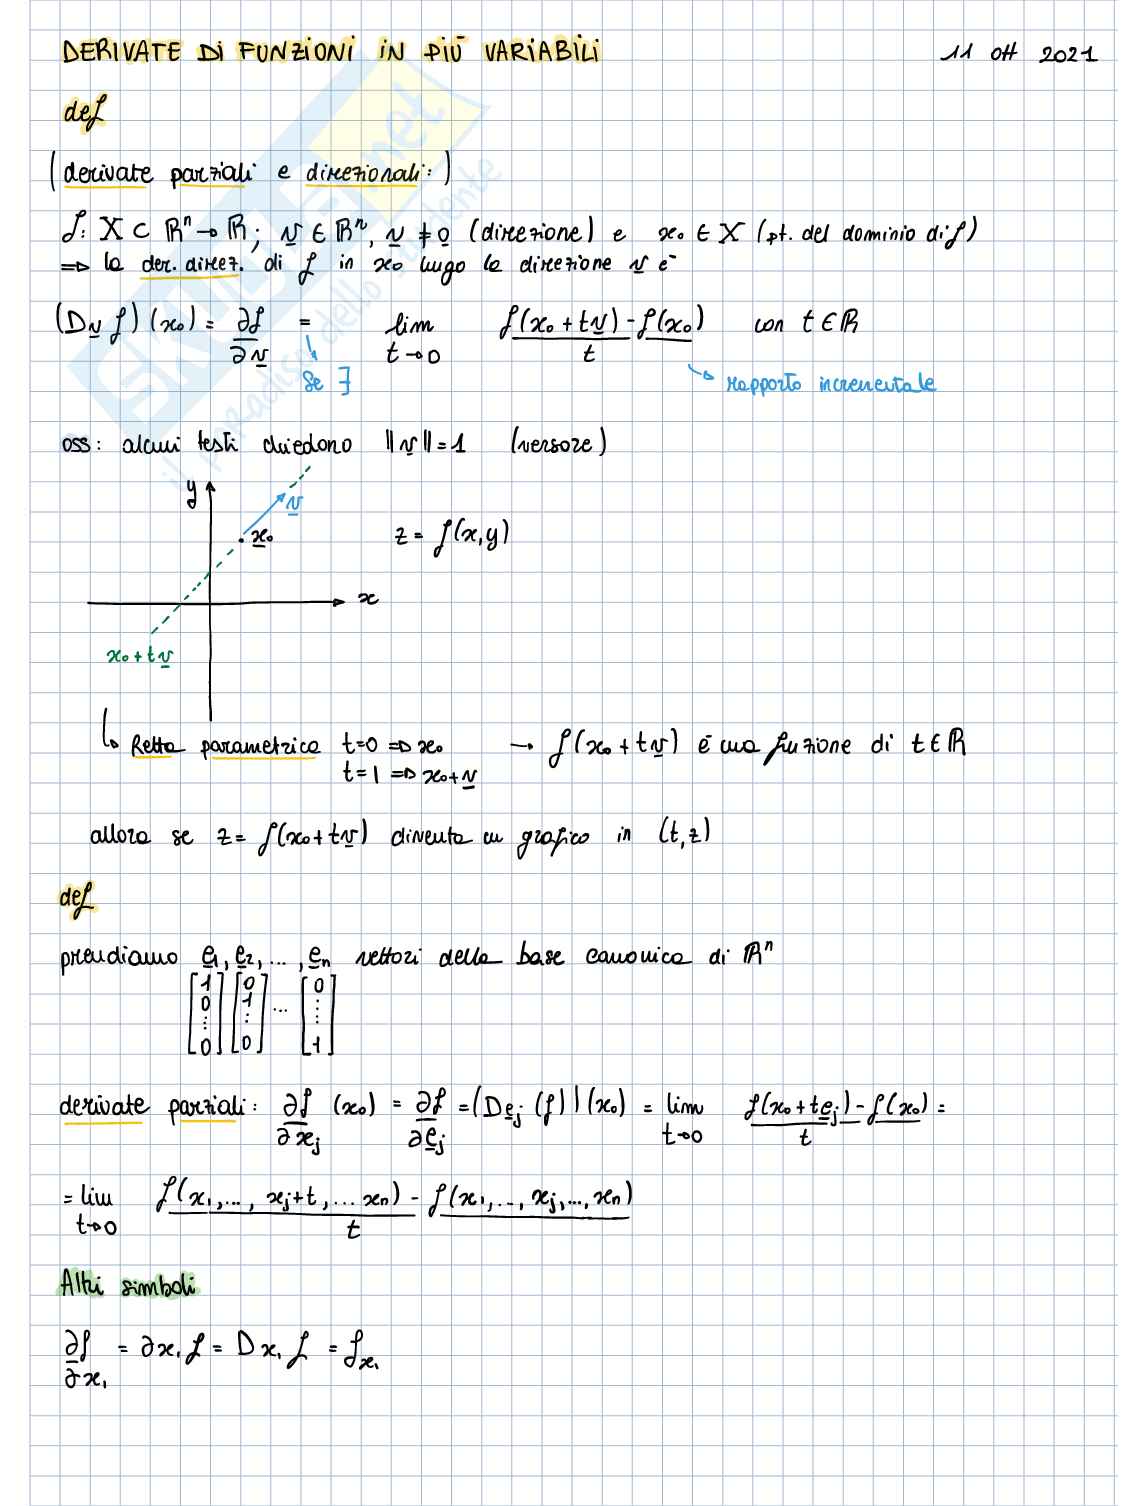 DERIVATE DI FUNZIONI IN PIÙ VARIABILI 11 ott 2021
def
(derivate parziali e direzionali:)
f: X ⊂ ℝⁿ → ℝ; v ∈ ℝⁿ, v ≠ 0 (direzione) e x₀ ∈ X (pt. del dominio di f)
⇒ la der. direz. di f in x₀ lungo la direzione v è
(D_v f)(x₀) = ∂f/∂v = lim t→0 (f(x₀ + tv) - f(x₀))/t con t ∈ ℝ
se ∃ rapporto incrementale
oss: alcuni testi chiedono ||v|| = 1 (versore)
y
v
x₀ z = f(x,y)
x
x₀ + tv
↳ Retta parametrica t=0 ⇒ x₀ → f(x₀ + tv) è una funzione di t ∈ ℝ
t=1 ⇒ x₀+v
allora se z = f(x₀+tv) diventa un grafico in (t,z)
def
prendiamo e₁, e₂, ..., eₙ vettori della base canonica di ℝⁿ
[1 0 ... 0] [0 1 ... 0] ... [0 ... ... 1]
derivate parziali: ∂f/∂xⱼ (x₀) = ∂f/∂eⱼ = (Deⱼ (f))(x₀) = lim t→0 (f(x₀+teⱼ) - f(x₀))/t =
= lim t→0 (f(x₁,..., xⱼ+t,... xₙ) - f(x₁,..., xⱼ,..., xₙ))/t
Altri simboli
∂f/∂x₁ = ∂x₁ f = Dx₁ f = f_x₁
SKUOLA.net
il paradiso dello studente